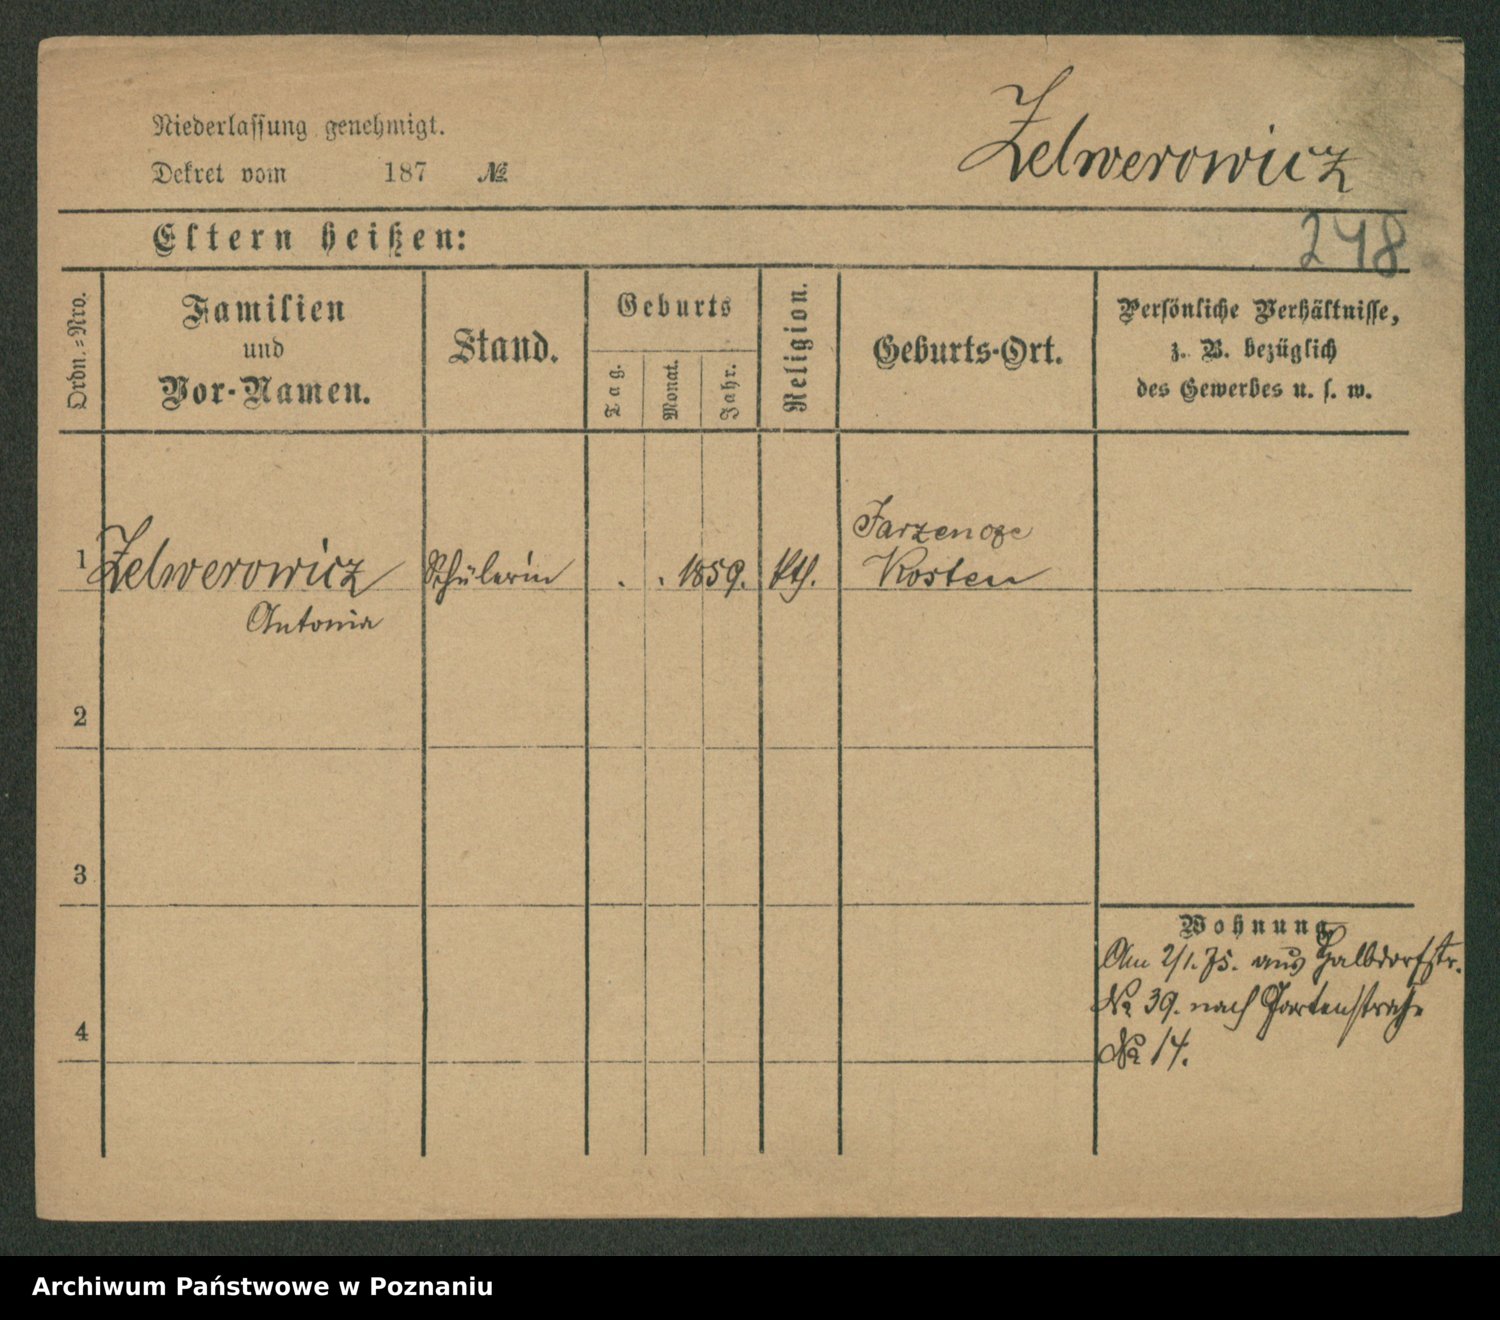 Niederlassung genehmigt.
Zelwerowicz
Dekret vom 187 №
Eltern heißen:
248
Ordn.-Nro.
Familien
und
Vor-Namen.
Stand.
Geburts
Tag.
Monat.
Jahr.
Religion.
Geburts-Ort.
Persönliche Verhältnisse,
z. B. bezüglich
des Gewerbes u. s. w.
1 Zelwerowicz Schülerin . . 1859. kth.
Antonia
Kosten
2
3
4
Wohnung
Am 2/1.75. aus Halbdorfstr.
№ 39. nach Gartenstraße
№ 14.
Archiwum Państwowe w Poznaniu